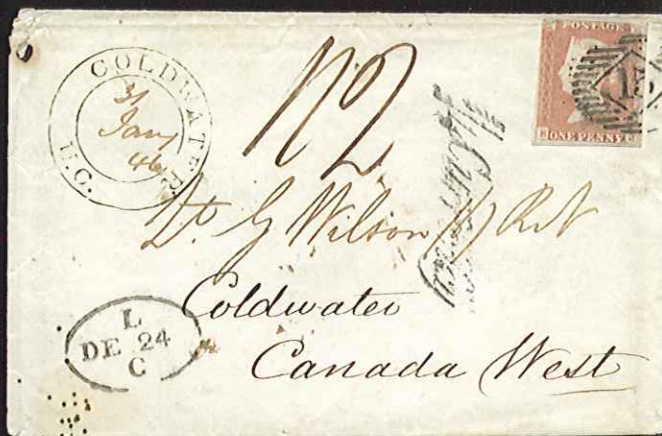 COLDWATER
U.C.
31
Jany
46
POSTAGE
ONE PENNY
Lt. G Wilson (1) RN
Coldwater
Canada West
L
DE 24
C